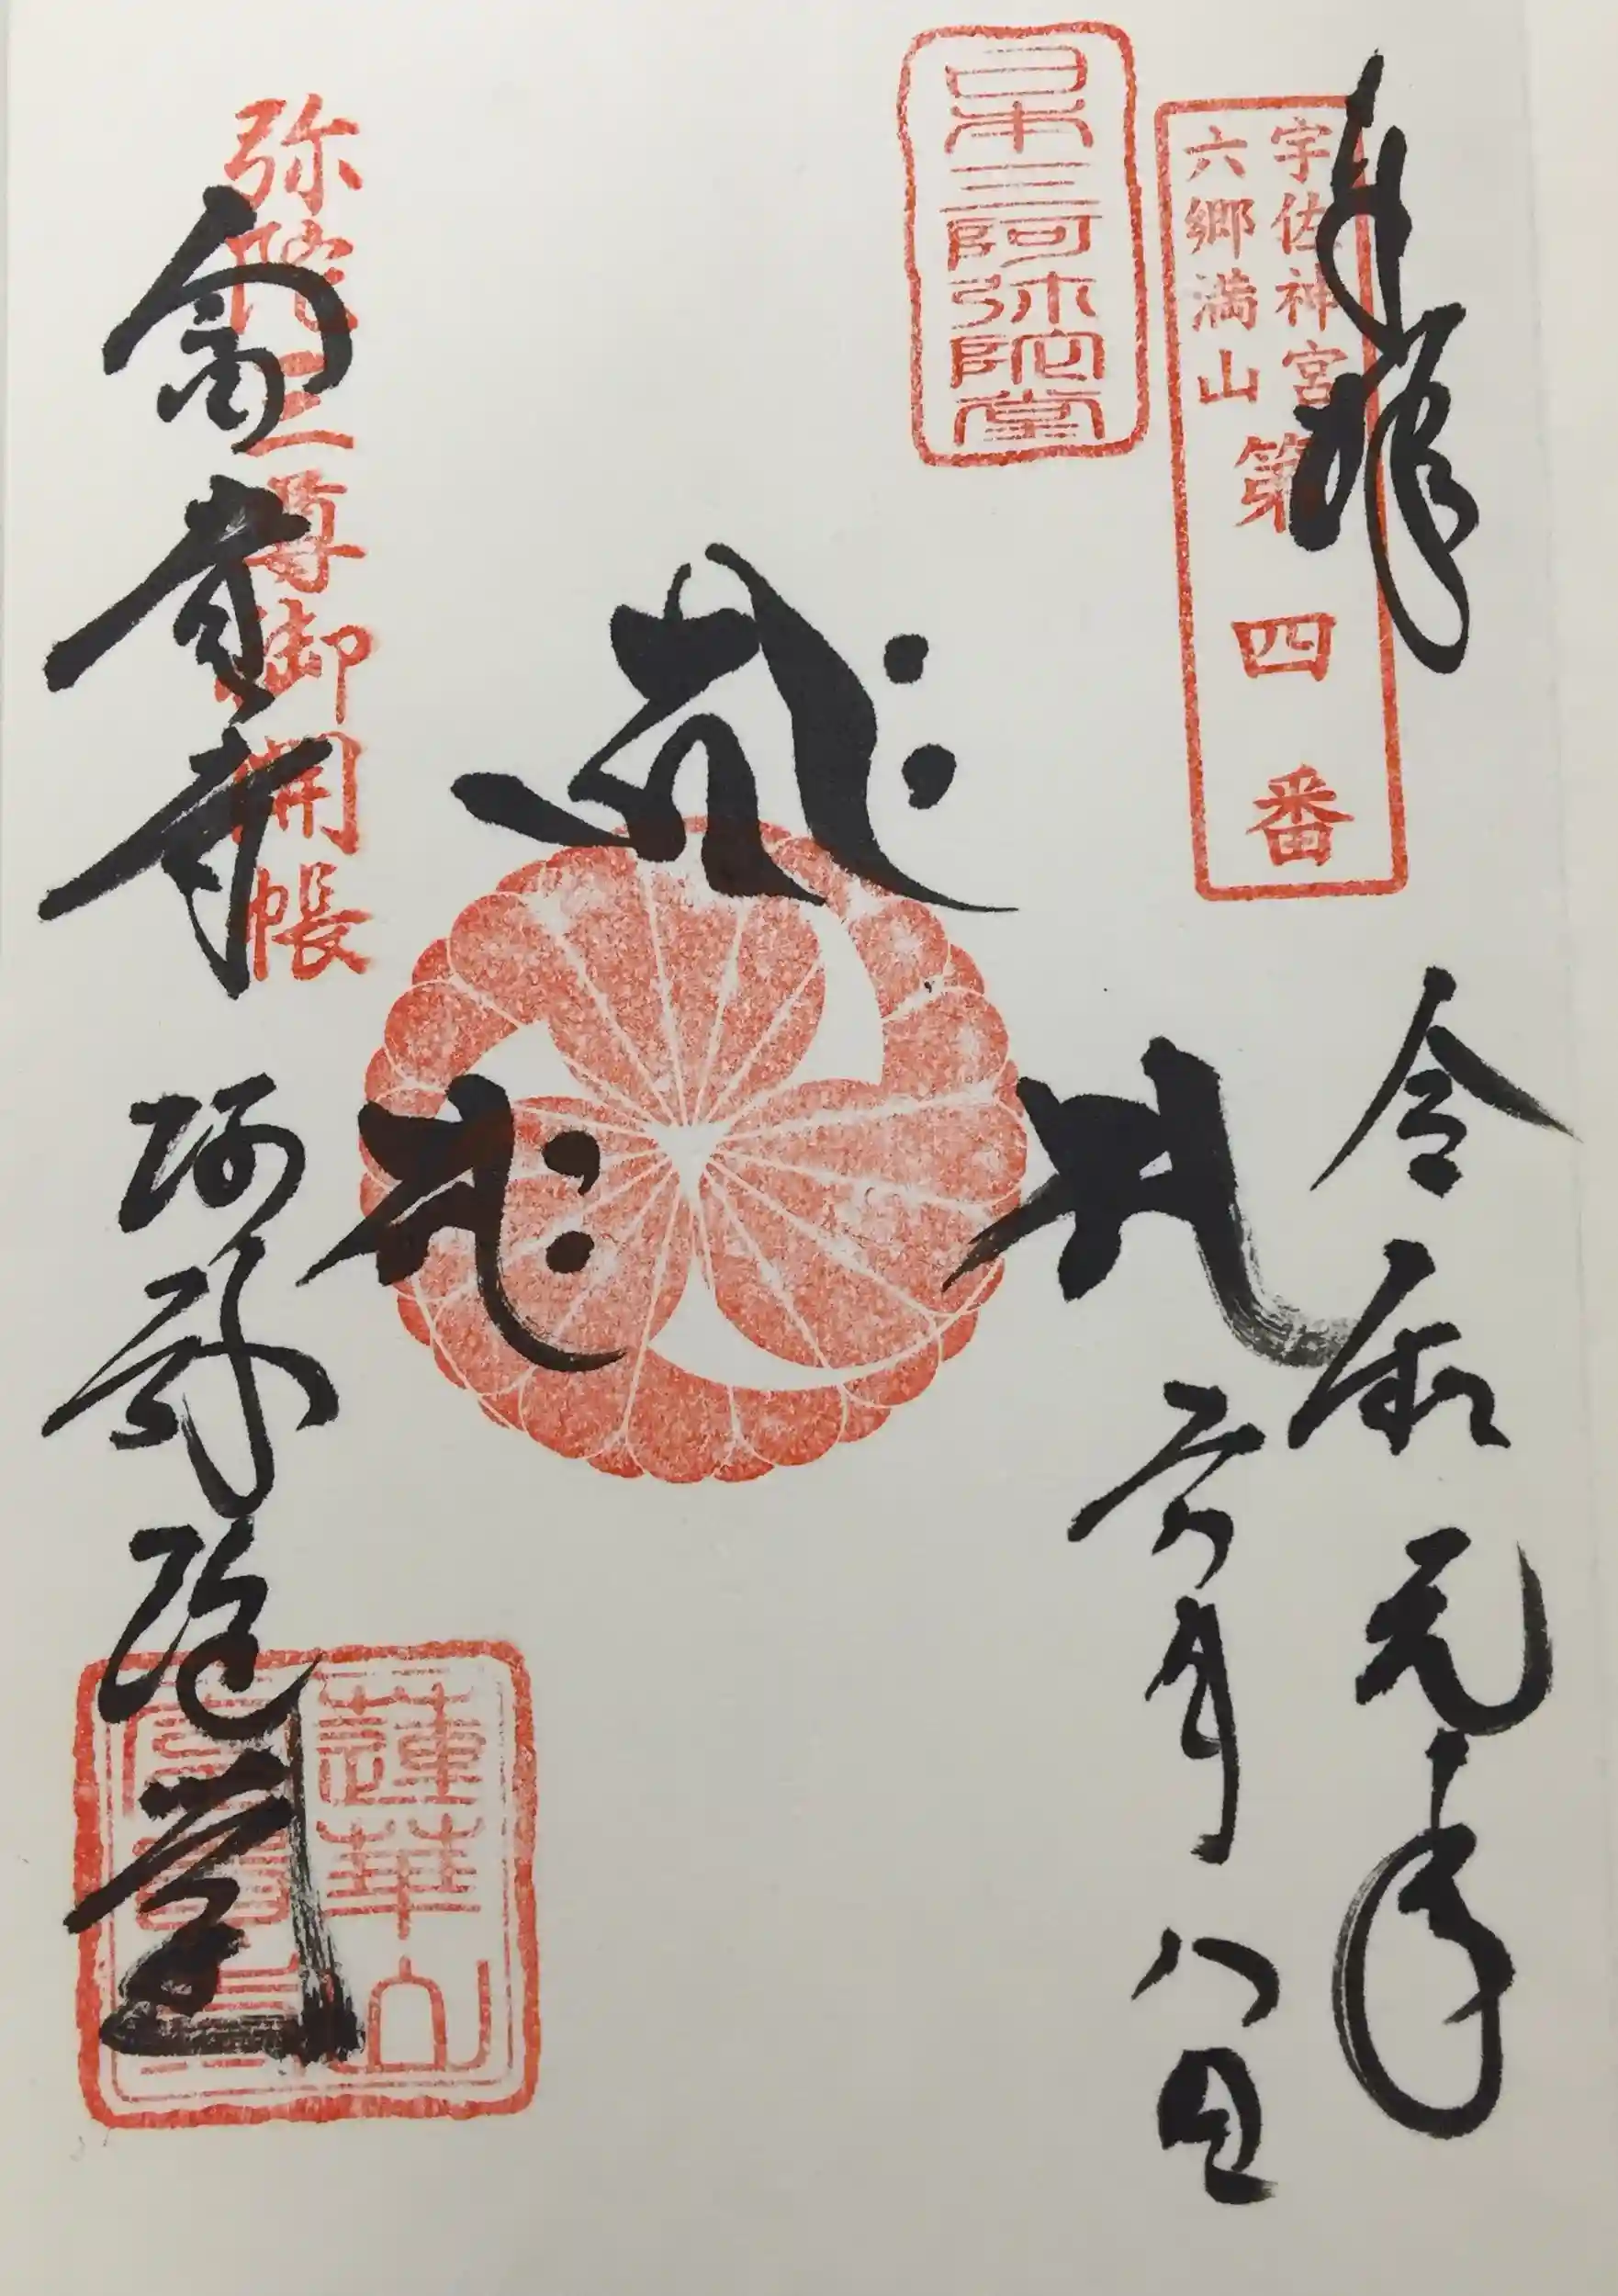 奉拝
宇佐神宮
六郷満山
第四番
日本三阿弥陀堂
令和元年
六月八日
弥陀三尊御開帳
富貴寺
阿弥陀堂
蓮華山